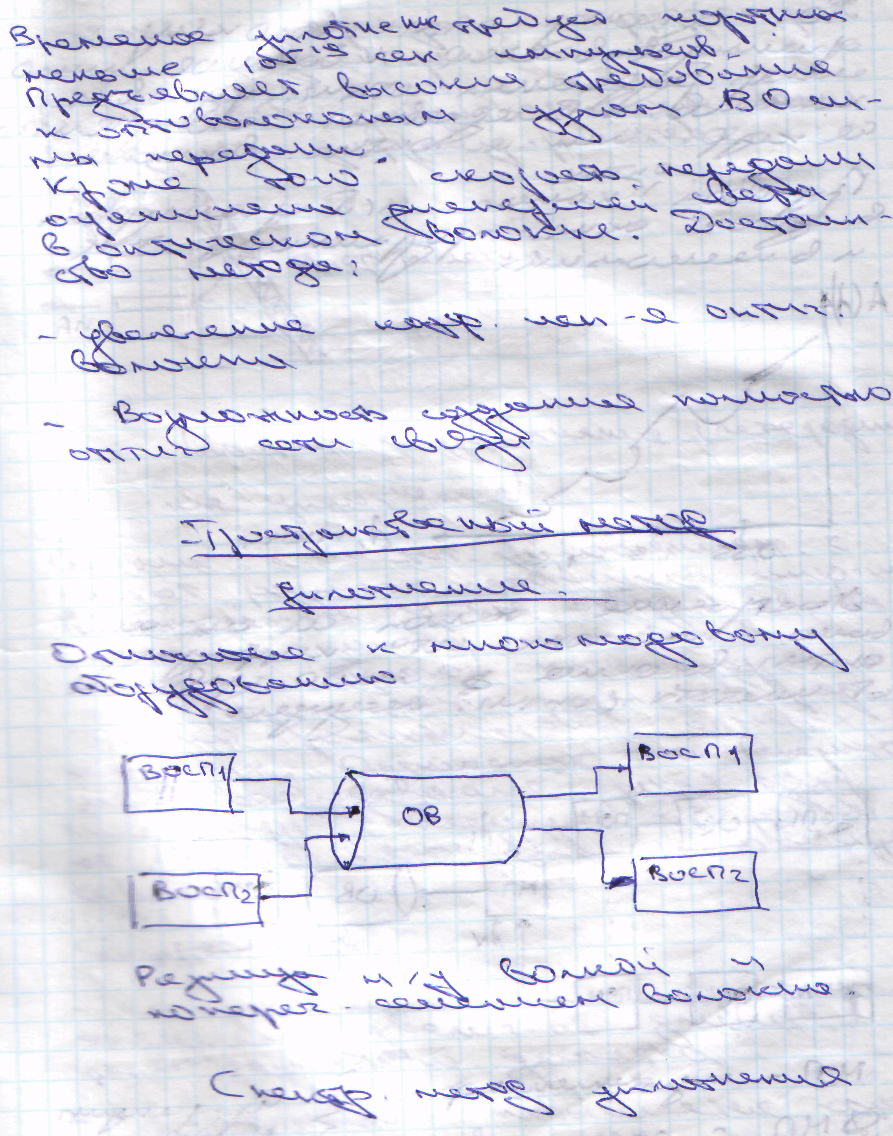 Временное уплотнен требует коротких
меньше 10⁻¹⁹ сек импульсов
Предъявляет высокие требования
к оптоволоконым узлам ВО
мы передачи.
Кроме того скорость передачи
ограничена дисперсией света
в оптическом волокне. Достоин-
ство метода:
- увеличение коэф. исп-я оптич.
волокна
- Возможность создания полностью
оптич сети связи
Прострнственый метод
уплотнения.
Отношение к многомодовому
оборудованию
ВОСП1
ВОСП1
ОВ
ВОСП2
ВОСП2
Разница м/у волной и
попереч. сечением волокна.
Спектр. метод уплотнения